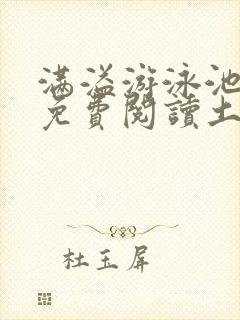 满溢游泳池
免費閱讀土
杜玉屏